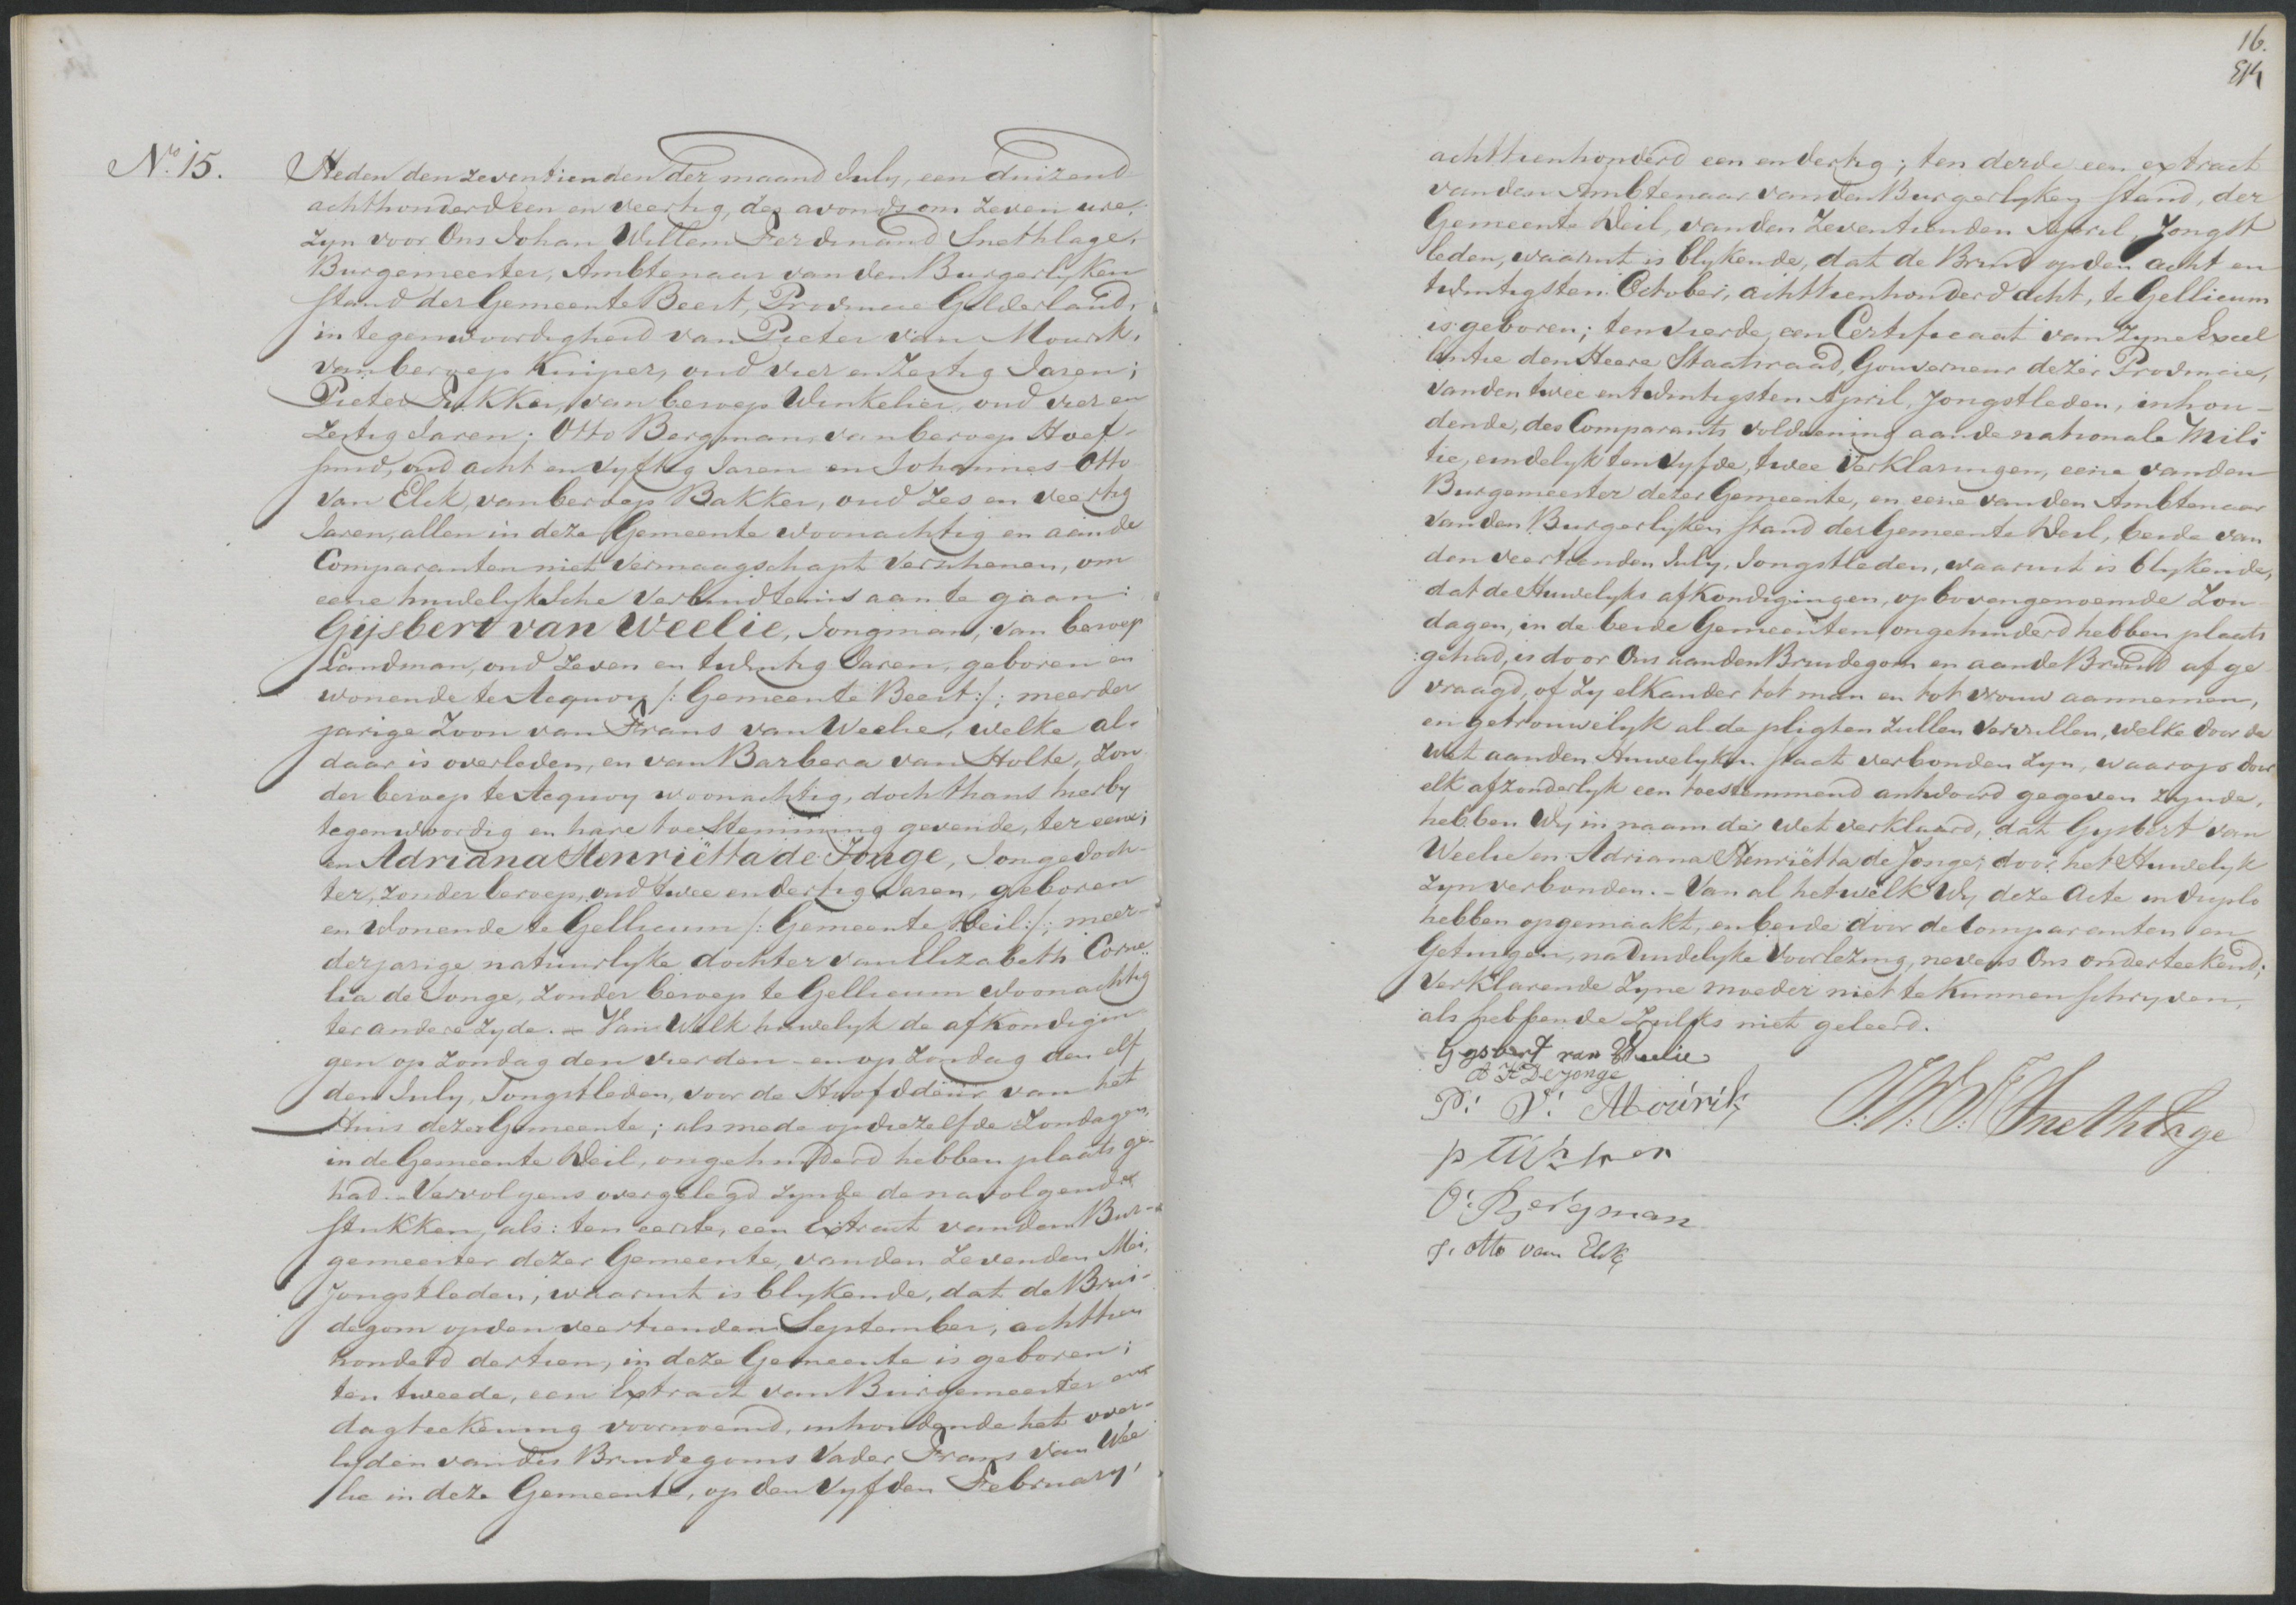 No. 15.
Heden den zeventienden der maand July, een duizend
achthonderd een en veertig, des avonds om zeven ure,
zyn voor Ons Johan Willem Ferdinand Snethlage,
Burgemeester, Ambtenaar van den Burgerlyken
stand der Gemeente Beest, Provincie Gelderland,
in tegenwoordigheid van Pieter van Mourik,
van beroep Kuiper, oud vier en Zestig Jaren;
Pieter van beroep Winkelier, oud vier en
Zestig Jaren; Otto Bergman, van beroep Hoef-
smid, oud acht en vyftig Jaren en Johannes Otto
van Elck, van beroep Bakker, oud zes en veertig
Jaren, allen in deze Gemeente woonachtig en aan de
Comparanten niet vermaagschapt verschenen, om
eene huwelyksche verbindtenis aan te gaan:
Gijsbert van Weelie, Jongman, van beroep
Landman, oud zeven en twintig Jaren, geboren en
wonende te Acquoy /: Gemeente Beest :/; meerder
jarige Zoon van Frans van Weelie, welke al-
daar is overleden, en van Barbera van Holte, zon
der beroep te Acquoy woonachtig, doch thans hierby
tegenwoordig en hare toestemming gevende, ter eene;
en Adriana Henriëtta de Jonge, Jongedoch-
ter, zonder beroep, oud twee en dertig Jaren, geboren
en wonende te Gellicum /: Gemeente Deil :/; meer-
derjarige natuurlyke dochter van Elizabeth Corne-
lia de Jonge, zonder beroep te Gellicum woonachtig
ter andere zyde. – Van Welk huwelyk de afkondigin
gen op Zondag den vierden en op Zondag den elf
den July, Jongstleden, voor de Hoofddeur van het
Huis dezer Gemeente; als mede op diezelfde Zondagen,
in de Gemeente Deil, ongehinderd hebben plaats ge-
had. – Vervolgens overgelegd zynde de navolgende
stukken, als: ten eerste, een Extract van den Bur-
gemeester dezer Gemeente, van den zevenden Mei,
Jongstleden, waaruit is blykende, dat de Brui-
degom op den veertienden September, achttien
honderd dertien, in deze Gemeente is geboren;
ten tweede, een Extract van Burgemeester en
dagteekening voornoemd, inhoudende het over-
lyden van des Bruidegoms Vader Frans van Wee
lie in deze Gemeente, op den vyfden February,
16.
achttienhonderd een en dertig; ten derde een extract
van den Ambtenaar van den Burgerlyken stand, der
Gemeente Deil, van den Zeventienden April, Jongst
leden, waaruit is blykende, dat de Bruid op den acht en
twintigsten October, achttienhonderd acht, te Gellicum
is geboren; ten vierde, een Certificaat van Zyne Excel
lentie den Heere Staatsraad, Gouverneur dezer Provincie,
van den twee en twintigsten April, Jongstleden, inhou-
dende, des Comparants voldoening aan de nationale Mili
tie, eindelyk ten vyfde, twee Verklaringen, eene van den
Burgemeester dezer Gemeente, en eene van den Ambtenaar
van den Burgerlyken stand der Gemeente Deil, beide van
den veertienden July, Jongstleden, waaruit is blykende,
dat de Huwelyks afkondigingen, op bovengenoemde Zon-
dagen, in de beide Gemeenten ongehinderd hebben plaats
gehad, is door Ons aan den Bruidegom en aan de Bruid af ge
vraagd, of zy elkander tot man en tot vrouw aannemen,
en getrouwelyk al de pligten zullen vervullen, welke door de
wet aan den Huwelyken staat verbonden zyn, waarop door
elk afzonderlyk een toestemmend antwoord gegeven zynde,
hebben Wy in naam der wet verklaard, dat Gysbert van
Weelie en Adriana Henriëtta de Jonge, door het Huwelyk
zyn verbonden. – Van al hetwelk Wy deze Acte in duplo
hebben opgemaakt, en beide door de Comparanten en
Getuigen, na duidelyke Voorlezing, nevens Ons onderteekend;
Verklarende Zyne moeder niet te kunnen schryven,
als hebbende zulks niet geleerd.
Gysbert van Weelie
A H De jonge
P: V: Mourik
J. W. F. Snethlage
O: Bergman
J: Otto van Elck